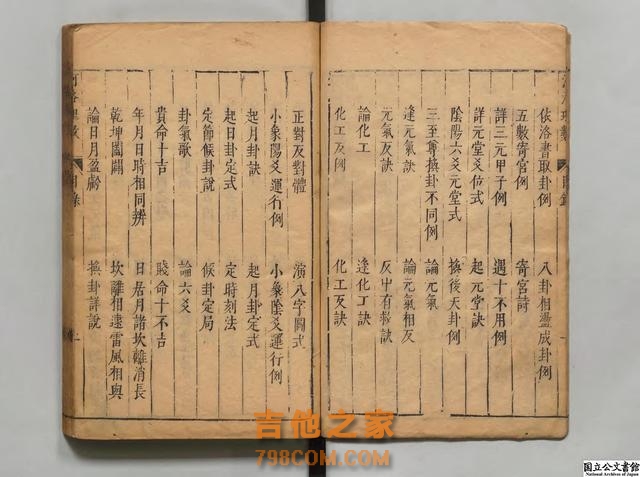 依洛書取卦例 八卦相盪成卦例
五數寄宮例 寄宮詩
詳三元甲子例 遇十不用例
詳元堂爻位式 起元堂訣
陰陽六爻元堂式 換後天卦例
三至尊換卦不同例 論元氣
逢元氣訣 論元氣相反
元氣反訣 反中有救訣
論化工 逢化工訣
化工反例 化工反訣
正對反對體 演八字圖式
小象陽爻運行例 小象陰爻運行例
起月卦訣 起月卦定式
起日卦定式 定時刻法
定節候卦說 候卦定局
卦氣歌 論六爻
貴命十吉 賤命十不吉
年月日時相同辨 日居月諸坎離消長
乾坤闔闢 坎離相遠雷風相與
論日月盈虧 換卦詳說
河洛理數 目錄
吉他之家
798COM.COM
国立公文書館
National Archives of Japan